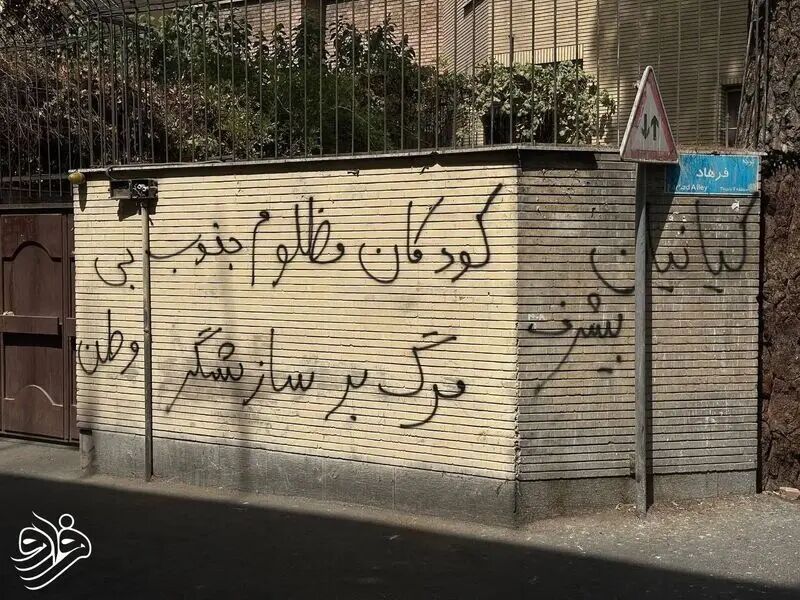 کوچه
فرهاد
ad Alley
کیانیان
بیشرف
کودکان مظلوم جنوب بی
مرگ بر سازشگر وطن
فرارو